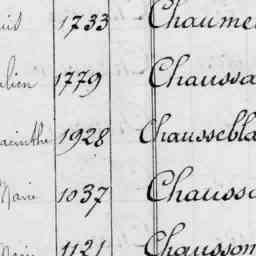 uis 1733 Chaume
ulien 1779 Chaussa
acinthe 1928 Chaussebla
Marie 1037 Chausso
Marie 1121 Chausson